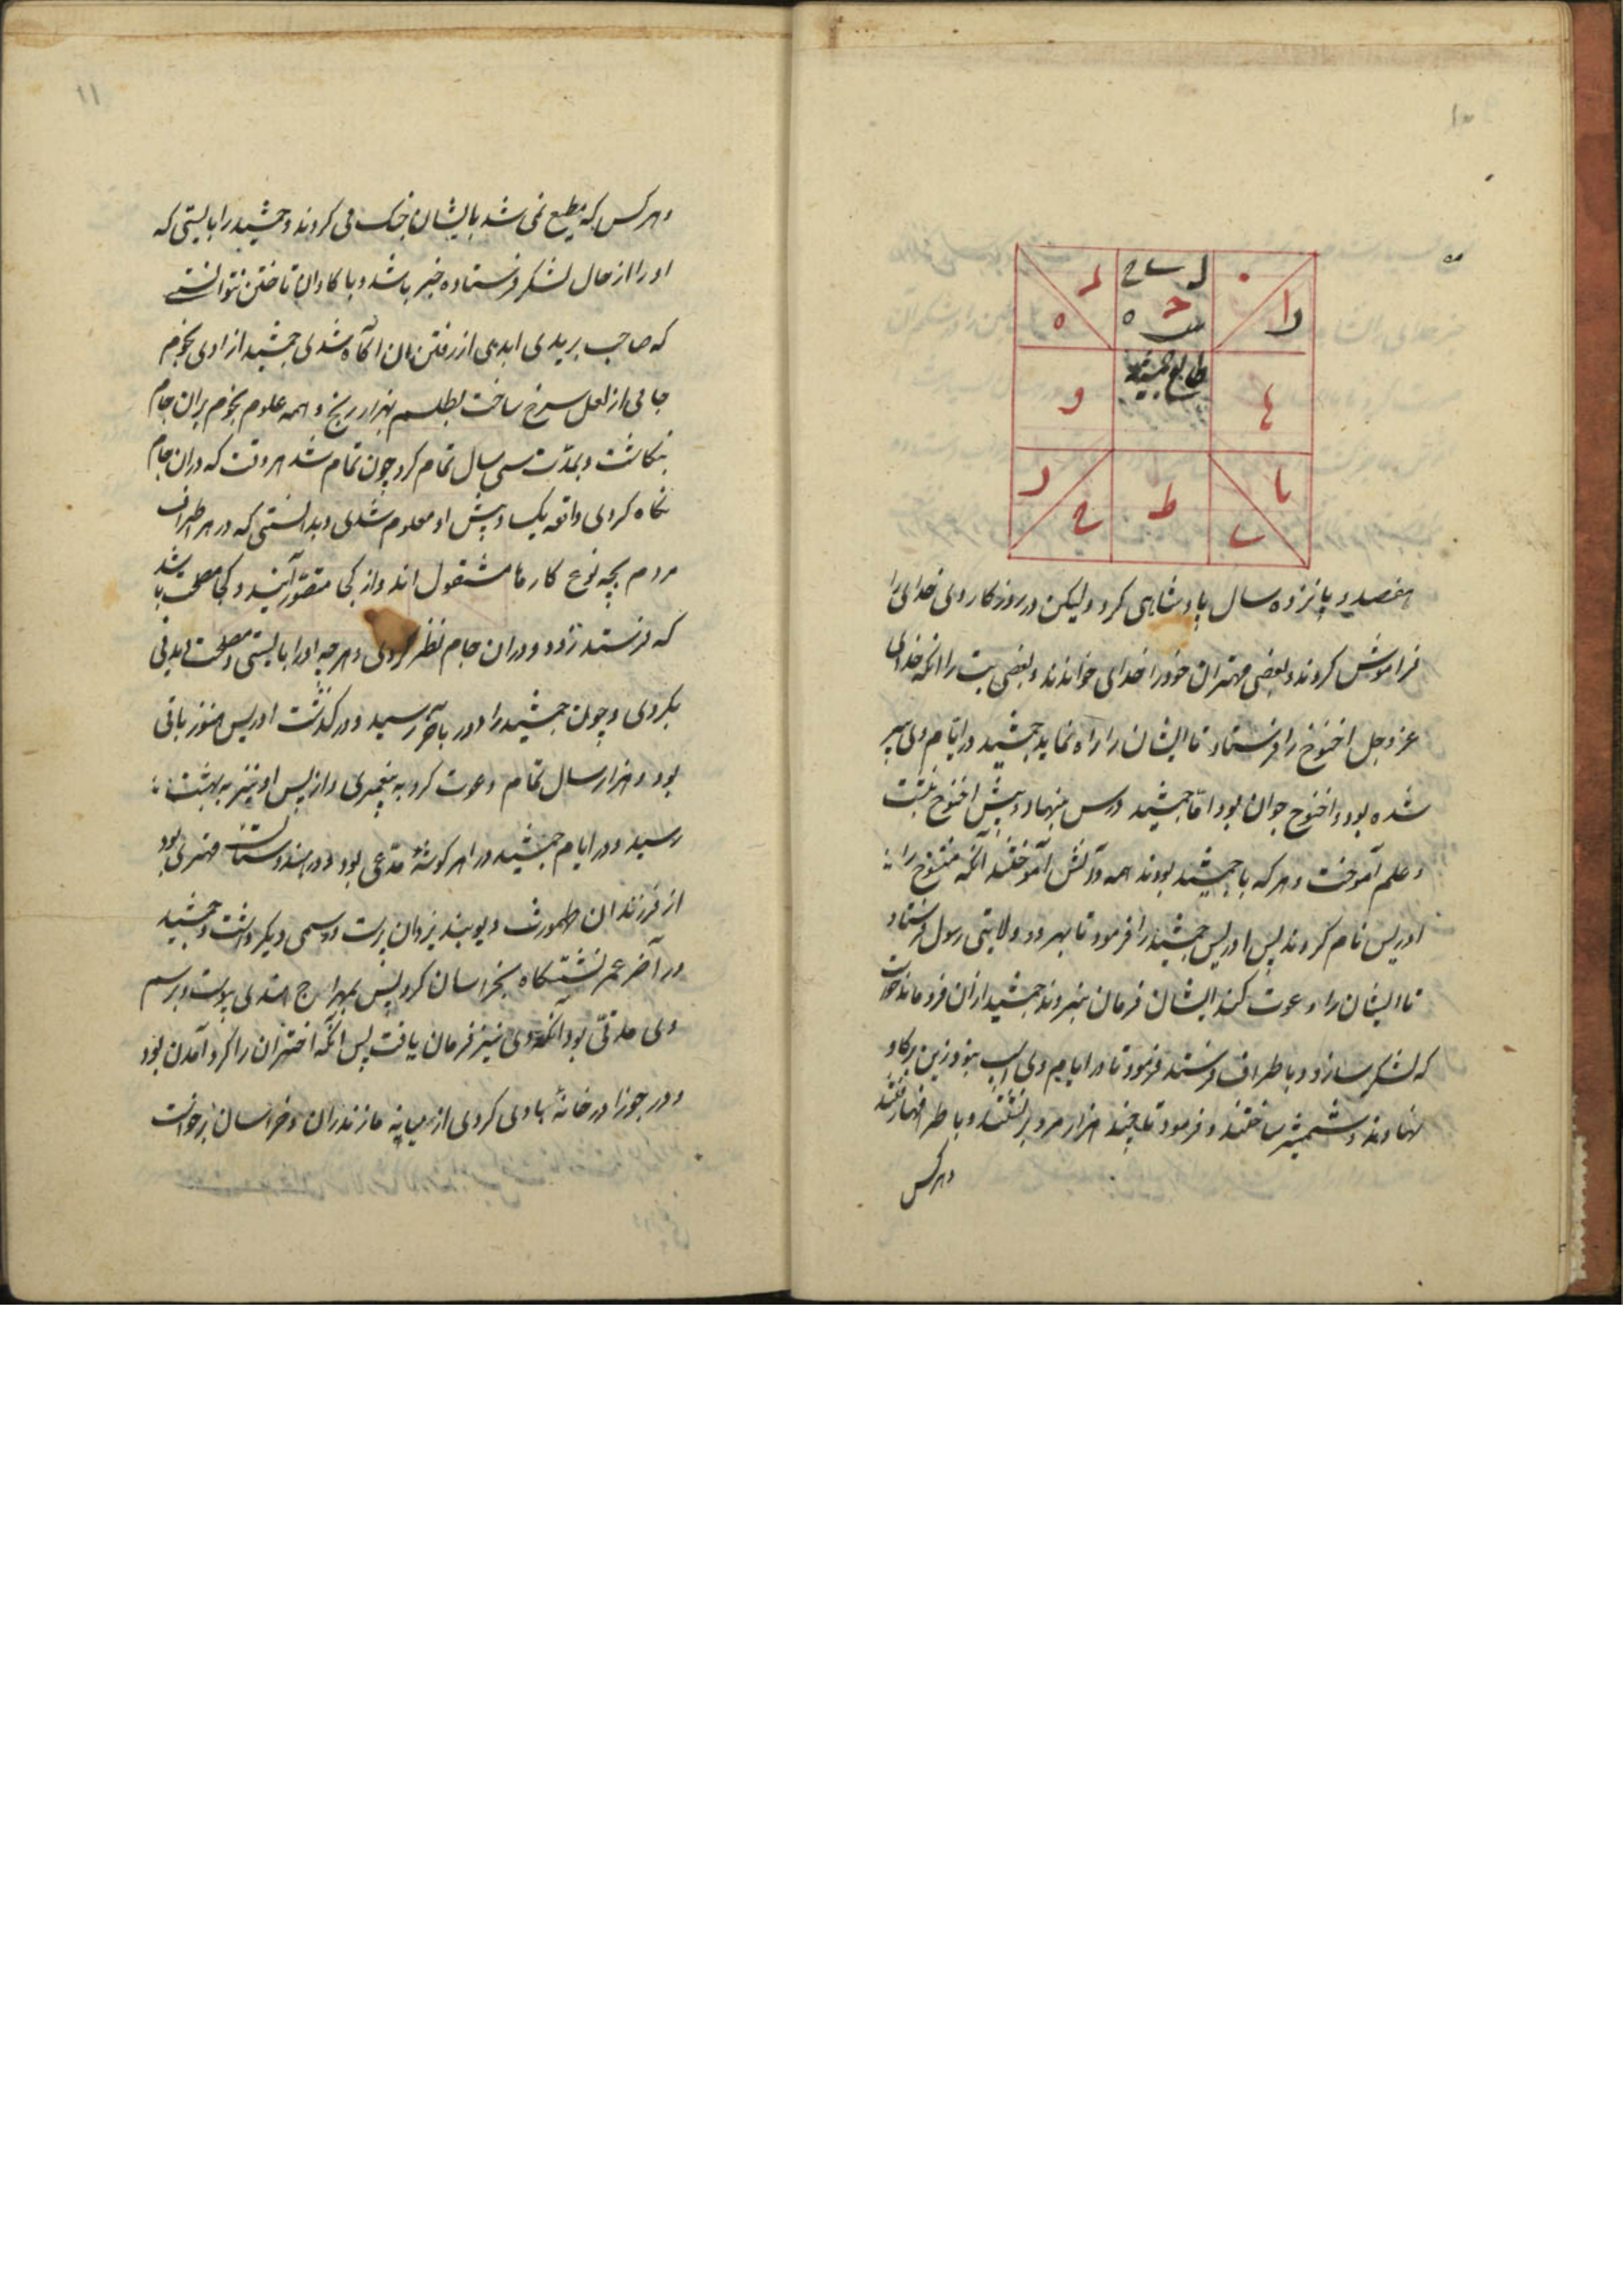 ۱۰
طالع جمشید
هفصد و پانزده سال پادشاهی کرد ولیکن در روزکار وی خدای را
فراموش کردند و بعضی مهتران خود را خدای خواندند و بعضی بت را انکه خدای
عز و جل اخنوخ را فرستاد تا ایشان را راه نماید جمشید در ایام وی پیر
شده بود و اخنوخ جوان بود اما جمشید درس بنهاد و پیش اخنوخ بنشست
و علم آموخت و هر که با جمشید بودند همه دانش آموختند آنکه اخنوخ را
ادریس نام کردند پس ادریس جمشید را فرمود تا بهر دو ولایتی رسول فرستاد
تا ایشان را دعوت کند ایشان فرمان نبردند جمشید ازان فرو ماند خواست
که لشکر سازد و باطراف فرستد فرمود تا در ایام وی اسب نبود زین بر کاو
نهادند و شمشیر ساختند و فرمود تا چند هزار مرد بر نشستند و باطرافها رفتند
وهرکس
۱۱
وهر کس که مطیع نمی شد با ایشان جنک می کردند و جمشید را بایستی که
او را از حال لشکر فرستاده خبر باشد و با کاوان تاختن نتوانستے
که صاحب بریدی ابدی از رفتن شان اکاه شدی جمشید از اوی نجوم
جامی از لعل سرخ ساخت بطلسم بهزار رنج و همه علوم نجوم بران جام
بنکاشت و بمدت سی سال تمام کرد چون تمام شد هر وقت که دران جام
نکاه کردی واقعه یک پیش او معلوم شدی و بدانستی که در هر اطراف
مردم بچه نوع کارها مشغول اند و از کجا آیند و کجا مصلحت باشد
که فرستد زود و دران جام نظر کردی و هر چه او را بایستی و مصلحت دیدنی
بکردی و چون جمشید را دور بآخر رسید و در کذشت ادریس هنوز باقی
بود و هزار سال تمام دعوت کرد به پیغمبری و از پس او نیز به بهشت
رسید و در ایام جمشید در هر کوشهٔ مدعی بود و در هندوستان مهتری بود
از فرزندان طهمورث دیوبند یزدان پرست و رسمی دیکر داشت و جمشید
در آخر عمر نشستکاه بخراسان کرد پس بمهراج هندی پیوست و برسم
وی مدتی بود آنکه وی نیز فرمان یافت پس انکه اختران را کرد آمدن بود
و در جوزا در خانهٔ بادی کردی از میانه مازندران و خراسان برخواست